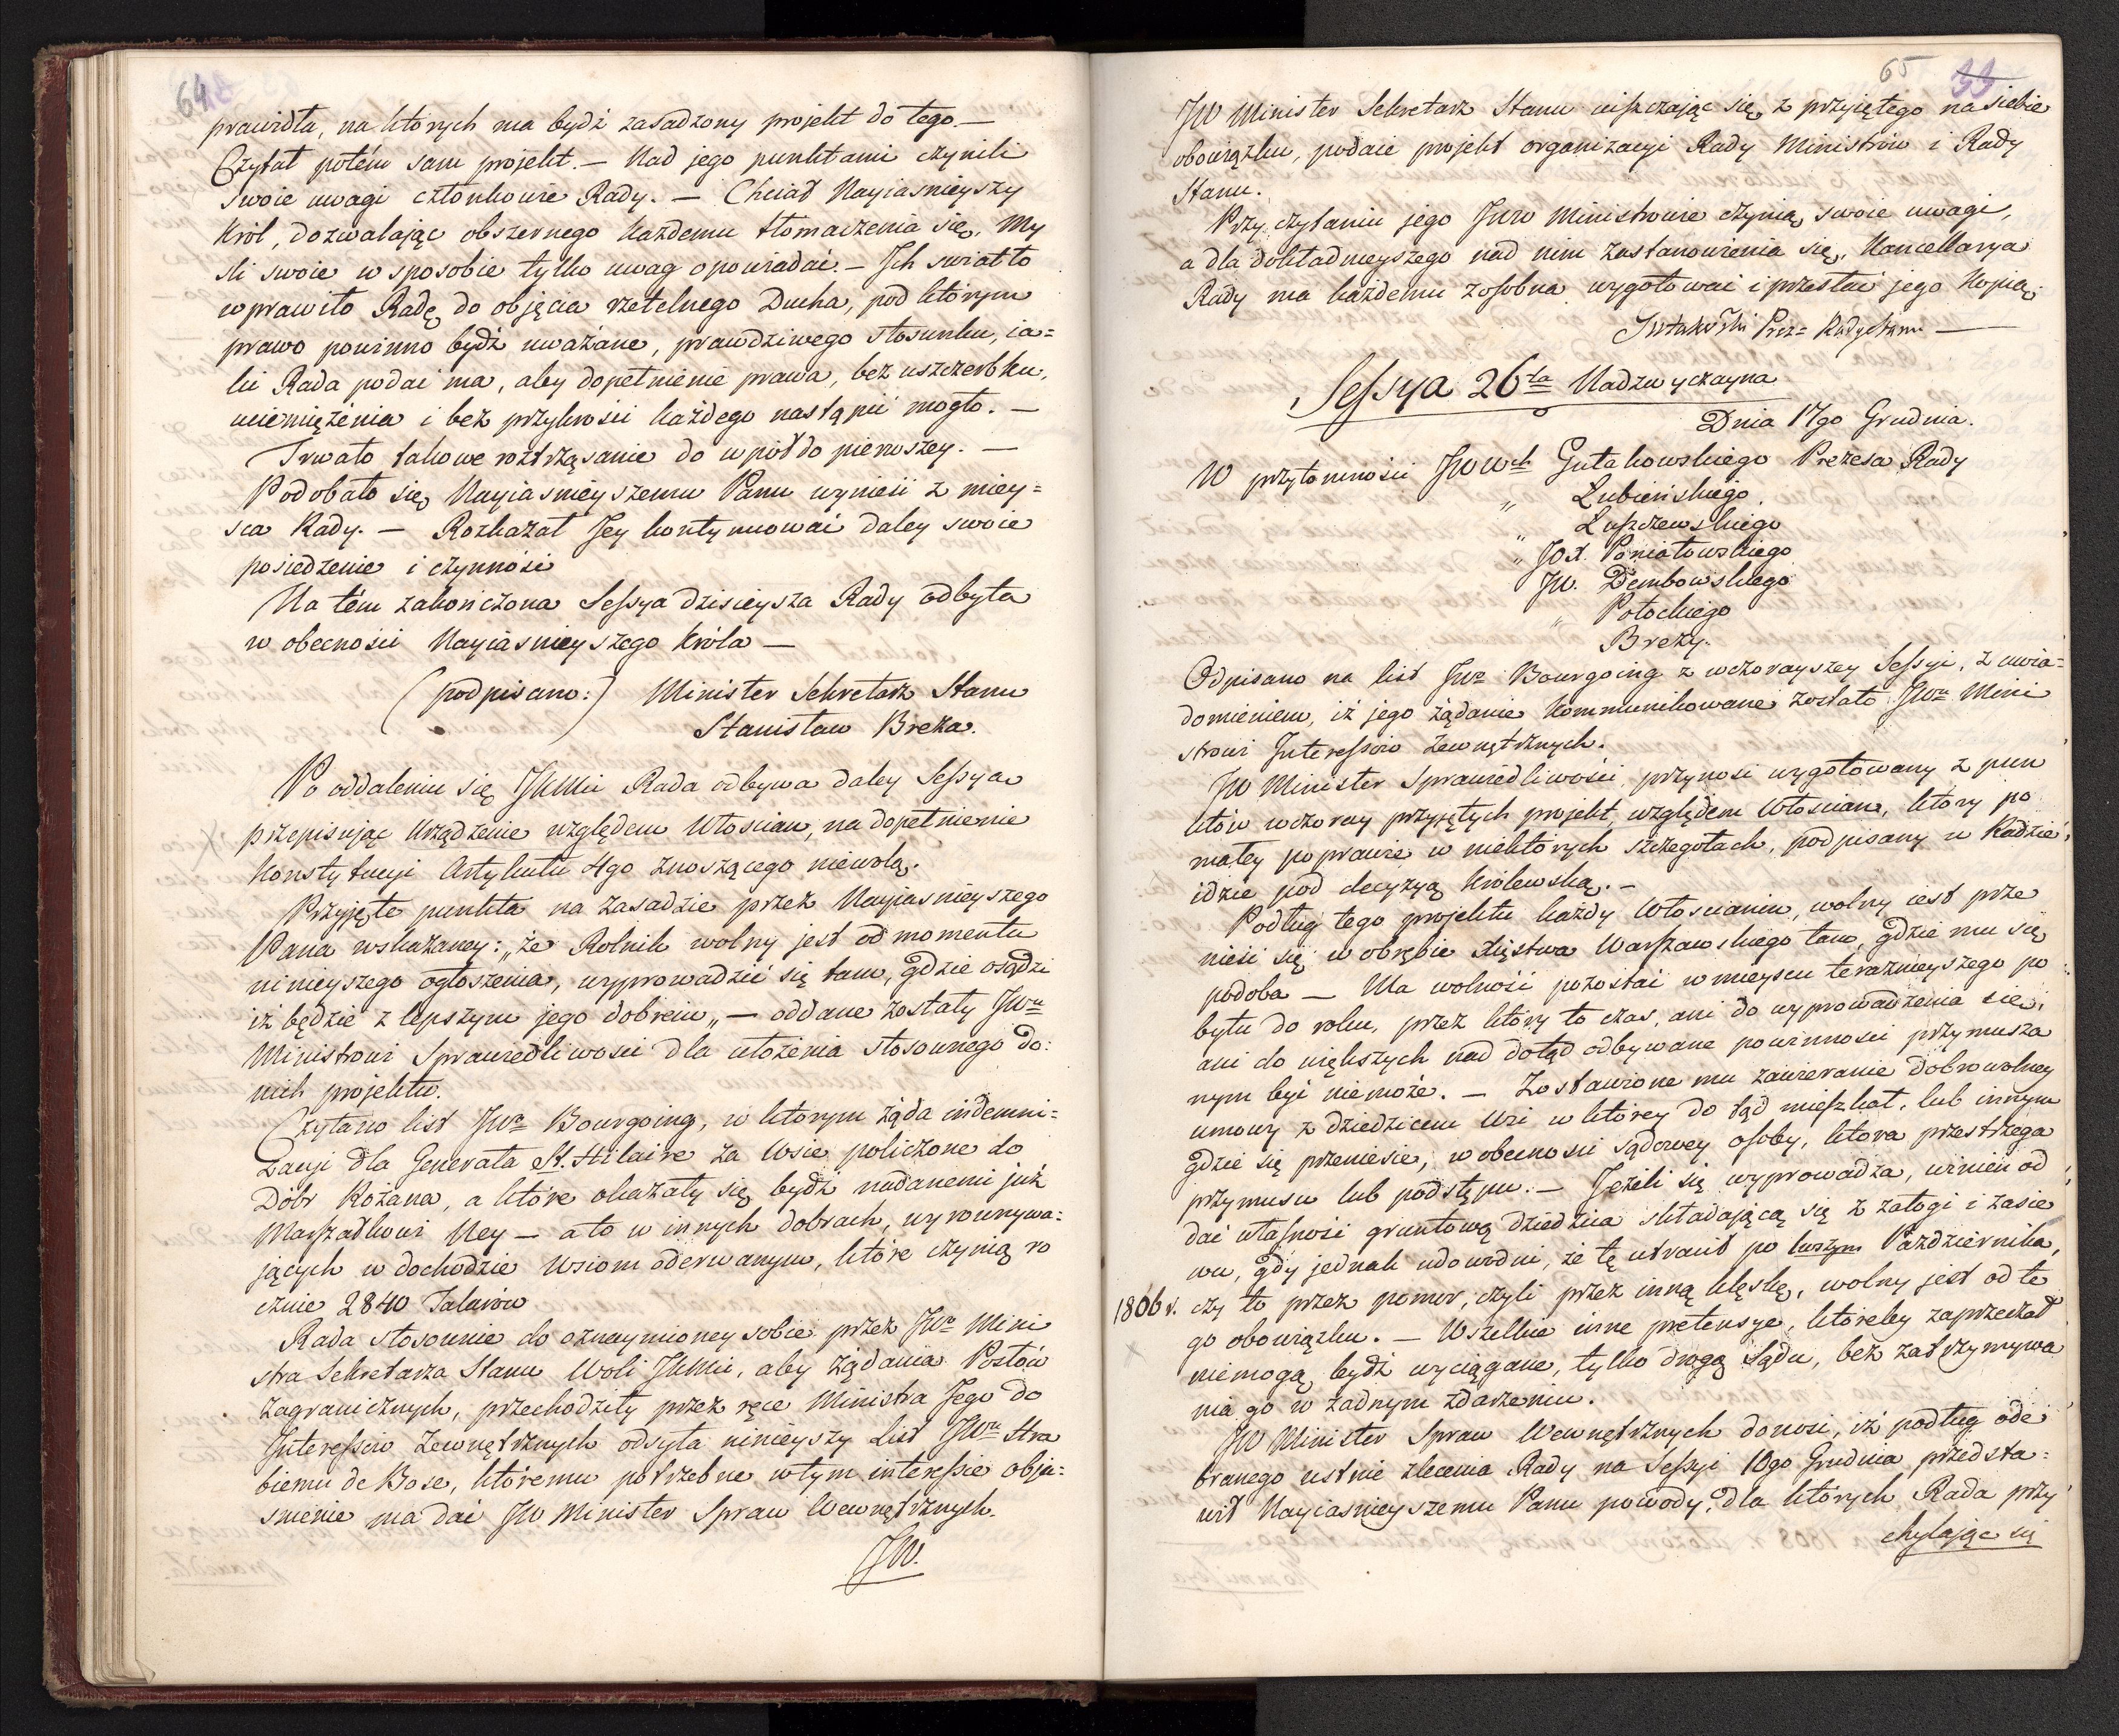 64
prawidła, na których ma bydź zasadzony projekt do tego. —
Czytał potém sam projekt. — Nad jego punktami czynili
swoie uwagi członkowie Rady. — Chciał Nayiasnieyszy
Król, dozwalaiąc obszernego każdemu tłomaczenia się, My
sli swoie w sposobie tylko uwag opowiadać. — Ich swiatło
wprawiło Radę do objęcia rzetelnego Ducha, pod którym
prawo powinno bydź uważane, prawdziwego stosunku, ia=
ki Rada podać ma, aby dopełnienie prawa, bez uszczerbku,
uciemiężenia i bez przykrości każdego nastąpić mogło. —
Trwało takowe roztrząsanie do wpół do pierwszey. —
Podobało się Nayiasnieyszemu Panu wynieść z miey=
sca Rady. — Rozkazał Jey kontynuować daley swoie
posiedzenie i czynności
Na tém zakończona Sessya dzisieysza Rady odbyta
w obecności Nayiasnieyszego Króla —
(podpisano:) Minister Sekretarz Stanu
Stanisław Breza.
Po oddaleniu się JKMci Rada odbywa daley Sessyą
przepisując Urządzenie względem Włoscian, na dopełnienie
Konstytucyi Artykułu 4go znoszącego niewolą.
Przyjęte punkta na zasadzie przez Nayjasnieyszego
Pana wskazaney: „że Rolnik wolny jest od momentu
ninieyszego ogłoszenia, wyprowadzić się tam, gdzie osądzi
iż będzie z lepszym jego dobrem„ — oddane zostały JWu
Ministrowi Sprawiedliwosci dla ułożenia stosownego do
nich projektu.
Czytano list JWa Bourgoing, w którym żąda indemni=
zacyi dla Generała St. Hilaire za Wsie policzone do
Dóbr Rożana, a które okazały się bydź nadanemi już
Marszałkowi Ney — a to w innych dobrach, wyrownywa=
jących w dochodzie Wsiom oderwanym, które czynią ro
cznie 2840 Talarów
Rada stosownie do oznaymioney sobie przez JWa Mini
stra Sekretarza Stanu Woli JKMci, aby żądania Posłów
zagranicznych, przechodziły przez ręce Ministra Jego do
Interessów Zewnętrznych odsyła ninieyszy List JWu Hra
biemu de Bose, któremu potrzebne w tym interessie obja=
snienie ma dać JW Minister Spraw Wewnętrznych.
JW.
65
33
JW Minister Sekretarz Stanu uiszczając się z przyiętego na siebie
obowiązku, podaie projekt organizacyi Rady Ministrów i Rady
Stanu.
Przy czytaniu jego JWW Ministrowie czynią swoie uwagi,
a dla dokładnieyszego nad nim zastanowienia się, Kancellarya
Rady ma każdemu z osobna wygotować i przesłać jego Kopią.
Gutakowski Prez= Rady Stanu —
Sessya 26ta Nadzwyczayna
Dnia 17go Grudnia.
W przytomności JWWch Gutakowskiego Prezesa Rady
„ Łubieńskiego.
Łuszczewskiego
„ JOX. Poniatowskiego
JW. Dembowskiego
„ Potockiego
Brezy.
Odpisano na list JWa Bourgoing z wczorayszey Sessyi, z uwia=
domieniem, iż jego żądanie kommunikowane zostało JWu Mini
strowi Interessów Zewnętrznych.
JW Minister Sprawiedliwości przynosi wygotowany z pun
któw wczoray przyjętych projekt względem Włoscian, który po
małey poprawie w niektórych szczegołach, podpisany w Radzie,
idzie pod decyzyą Królewską. —
Podług tego projektu każdy Włoscianin, wolny iest prze
nieść się w obrębie Xięstwa Warszawskiego tam, gdzie mu się
podoba — Ma wolność pozostać w mieyscu teraznieyszego po
bytu do roku, przez który to czas, ani do wyprowadzenia się,
ani do większych nad dotąd odbywane powinności przymusza
nym być niemoże. — Zostawione mu zawieranie dobrowolney
umowy z dziedzicem Wsi w którey do tąd mieszkał, lub innym
gdzie się przeniesie, w obecności sądowey osoby, która przestrzega
przymusu lub podstępu. — Jeżeli się wyprowadza, winien od
dać własność gruntową dziedzica składającą się z załogi i zasie
wu, gdy jednak udowodni, że tę utracił po 1wszym Października,
1806 r. czy to przez pomor, czyli przez inną klęskę, wolny jest od te
go obowiązku. — Wszelkie inne pretensye, któreby zaprzeczał
niemogą bydź wyciągane, tylko drogą Sądu, bez zatrzymywa
nia go w żadnym zdarzeniu.
JW Minister Spraw Wewnętrznych donosi, iż podług ode
branego ustnie zlecenia Rady na Sessyi 10go Grudnia przedsta=
wił Nayiasnieyszemu Panu powody, dla których Rada przy
chylając się